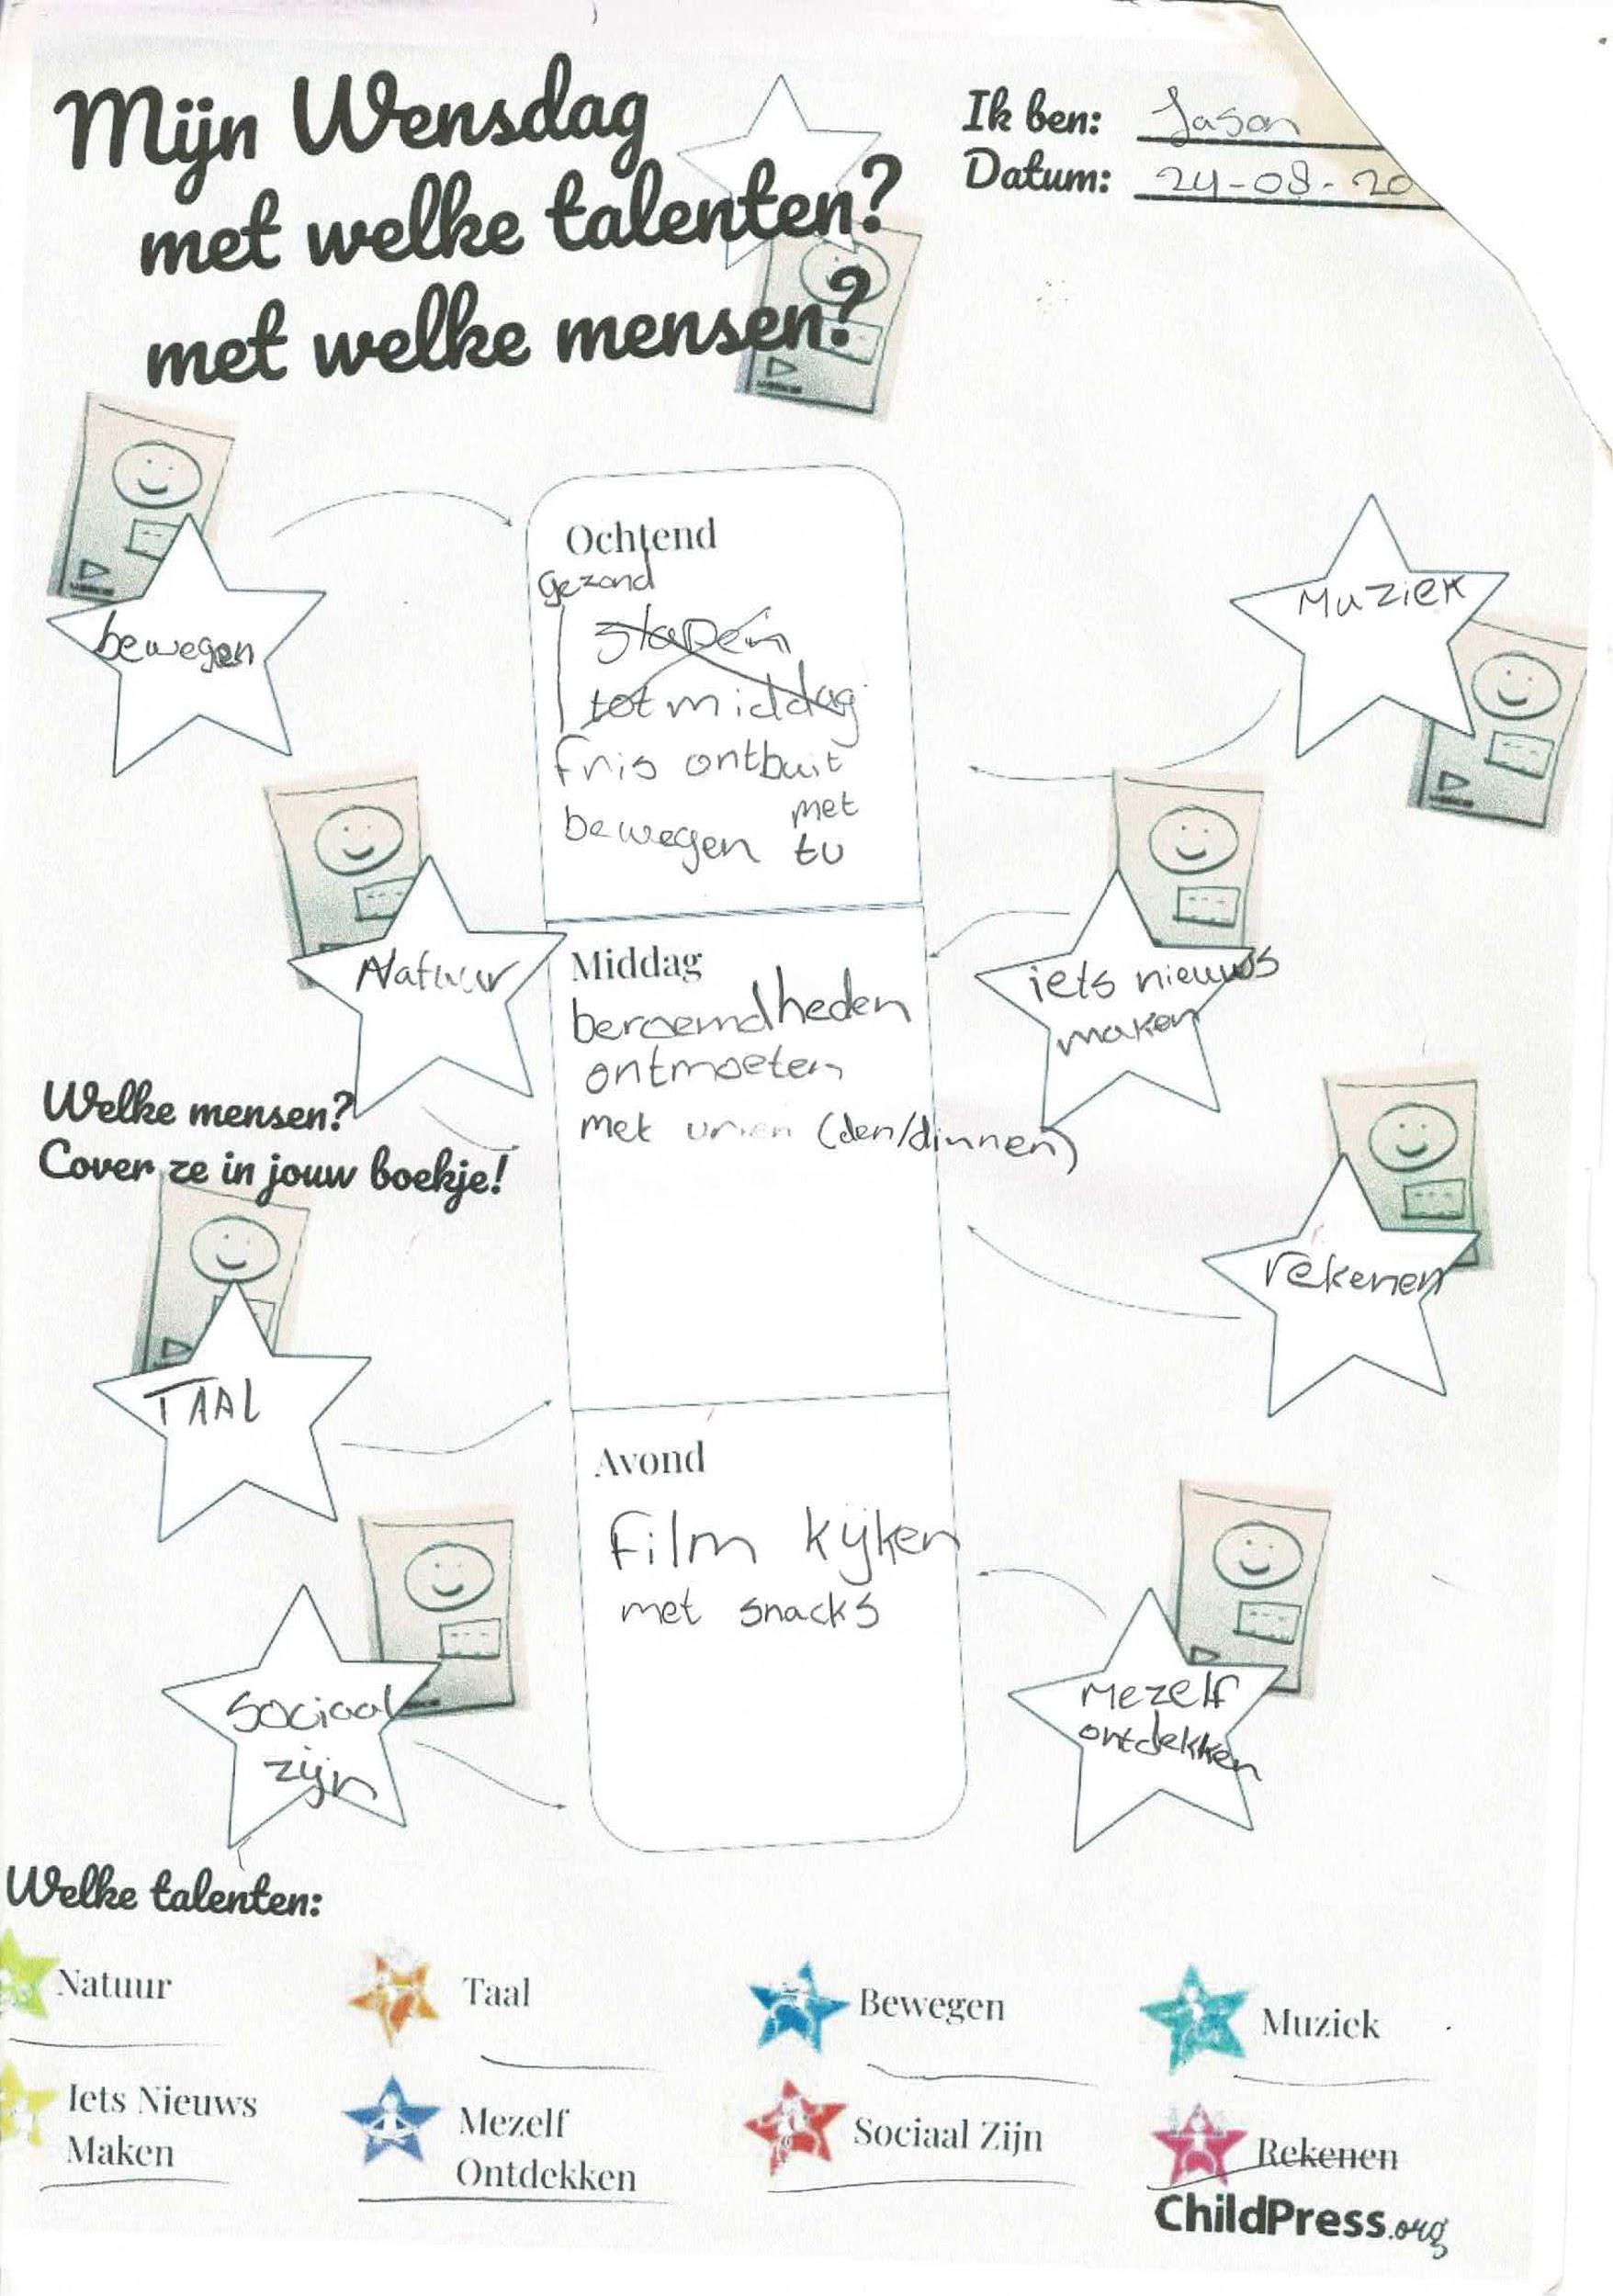 Mijn Wensdag
met welke talenten?
met welke mensen?
Ik ben: Jason
Datum: 24-08-20
bewegen
Ochtend
gezond
slapen
tot middag
fris ontbuit
bewegen met
tv
Muziek
Natuur
Middag
beroemdheden
ontmoeten
met vrien (den/dinnen)
iets nieuws
maken
Welke mensen?
Cover ze in jouw boekje!
rekenen
TAAL
Avond
Film kijken
met snacks
Sociaal
zijn
Mezelf
ontdekken
Welke talenten:
Natuur
Taal
Bewegen
Muziek
Iets Nieuws
Maken
Mezelf
Ontdekken
Sociaal Zijn
Rekenen
ChildPress.org